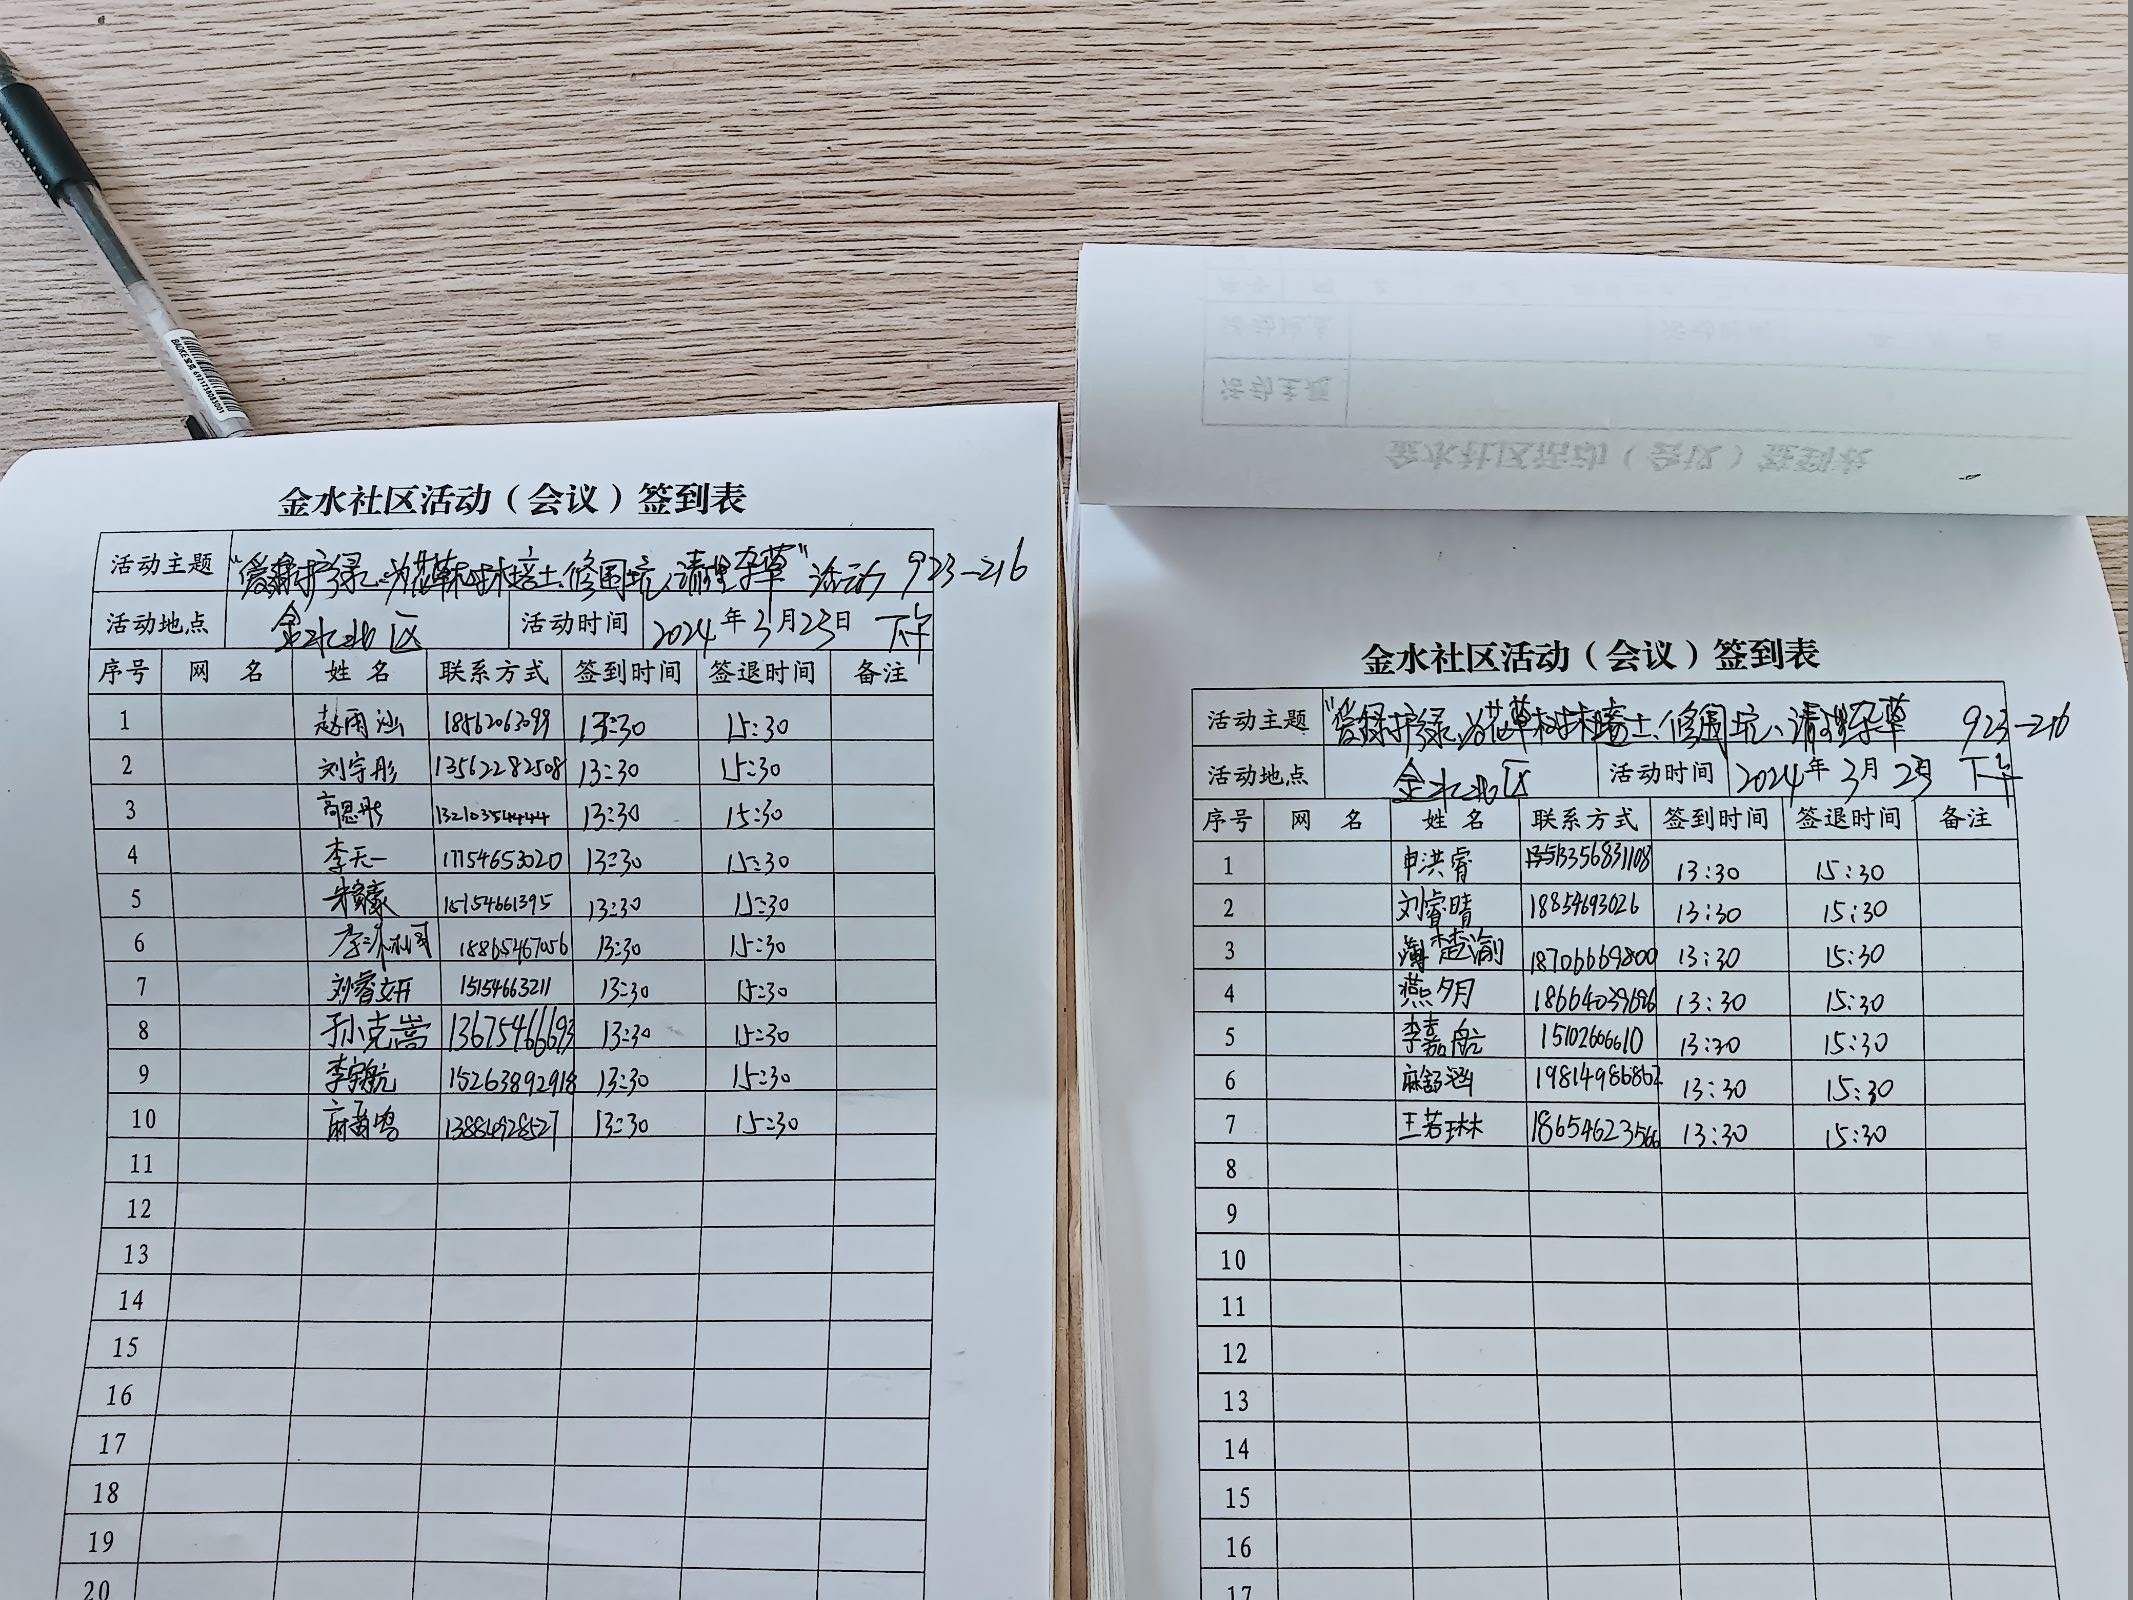 BAOKE宝克 6921738083001
金水社区活动（会议）签到表
活动主题 "爱绿护绿、为花草树木培土、修围坑、清理杂草"活动 923-216
活动地点 金水北区 活动时间 2024年3月23日 下午
序号 网名 姓名 联系方式 签到时间 签退时间 备注
1 赵雨汕 18562063099 13:30 15:30
2 刘宇彤 13562282508 13:30 15:30
3 高恩彤 13210354444 13:30 15:30
4 李天一 17154653020 13:30 15:30
5 15154661395 13:30 15:30
6 18865467056 13:30 15:30
7 刘睿妍 15154663211 13:30 15:30
8 孙克嵩 13675466693 13:30 15:30
9 李宇航 15263892918 13:30 15:30
10 13884928527 13:30 15:30
11
12
13
14
15
16
17
18
19
20
金水社区活动（会议）签到表
活动主题 "爱绿护绿、为花草树木培土、修围坑、清理杂草 923-216
活动地点 金水北区 活动时间 2024年3月23日 下午
序号 网名 姓名 联系方式 签到时间 签退时间 备注
1 申洪睿 13356831108 13:30 15:30
2 刘睿晴 18854693026 13:30 15:30
3 楚渝 18706669800 13:30 15:30
4 燕夕月 18664039696 13:30 15:30
5 李嘉航 15102606610 13:30 15:30
6 麻舒涵 19814986862 13:30 15:30
7 王若琳 18654623566 13:30 15:30
8
9
10
11
12
13
14
15
16
17